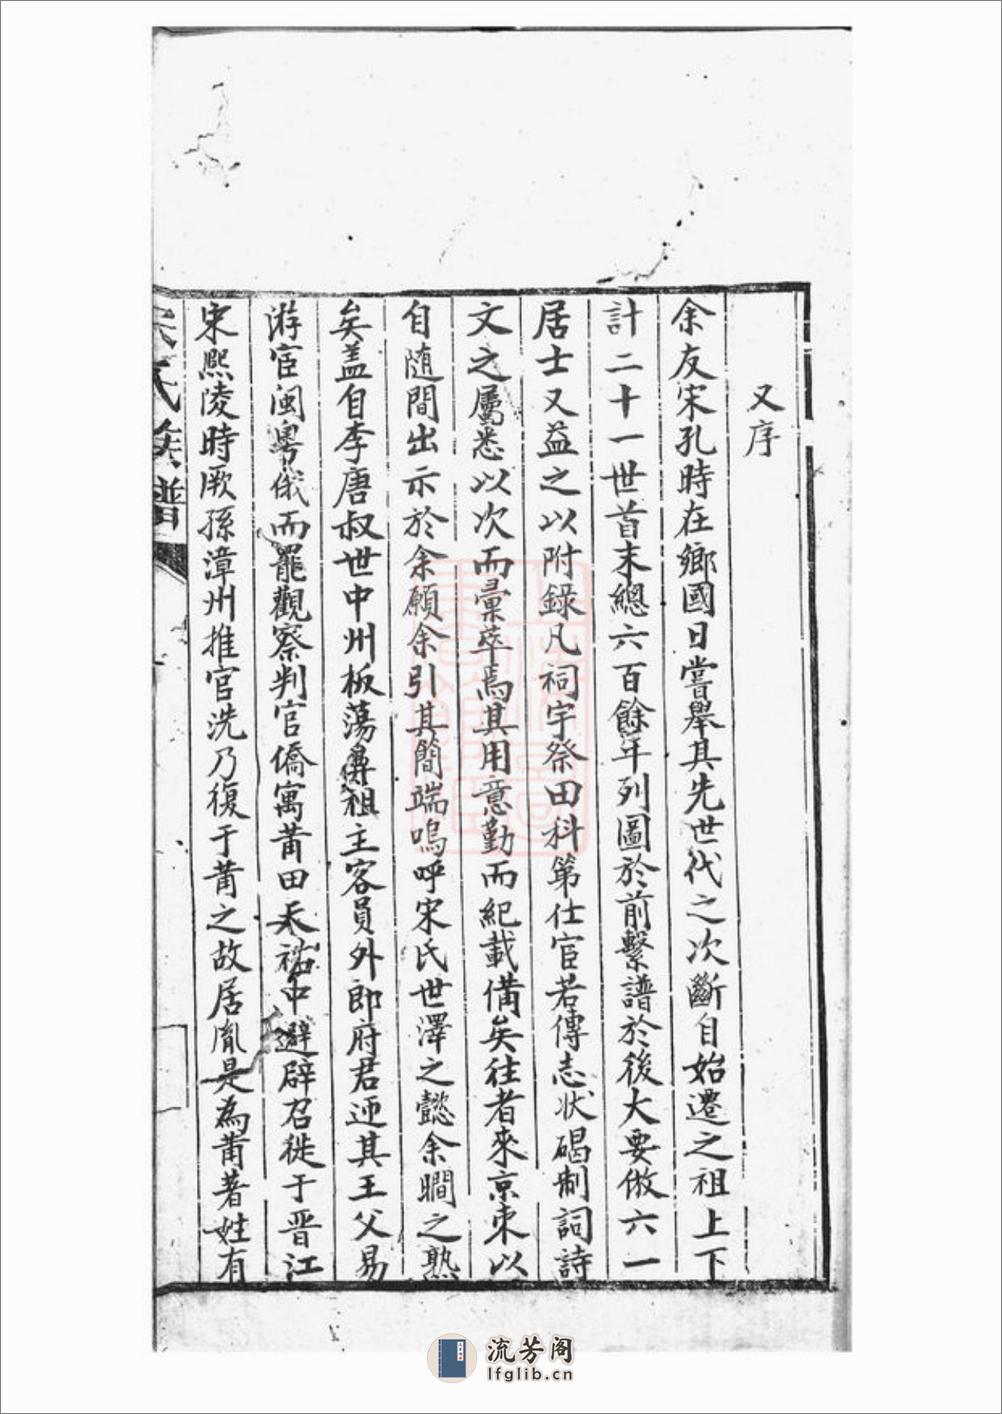 又序
余友宋孔時在鄉國日嘗舉其先世代之次斷自始遷之祖上下
計二十一世首末總六百餘年列圖於前繫譜於後大要倣六一
居士又益之以附錄凡祠宇祭田科第仕宦若傳志狀碣制詞詩
文之屬悉以次而彙萃焉其用意勤而紀載備矣往者來京束以
自隨間出示於余願余引其簡端嗚呼宋氏世澤之懿余瞷之熟
矣盖自李唐叔世中州板蕩鼻祖主客員外郎府君迊其王父易
游宦閩粵俄而罷觀察判官僑寓莆田天祐中避辟召徙于晋江
宋熙陵時厥孫漳州推官洗乃復于莆之故居胤是為莆著姓有
宋氏族譜
流芳阁
lfglib.cn